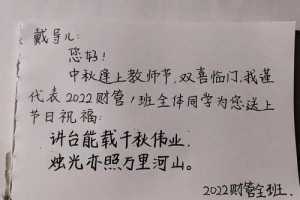 戴导儿:
您好!
中秋逢上教师节,双喜临门,我谨
代表2022财管1班全体同学为您送上
节日祝福:
讲台能载千秋伟业,
烛光亦照万里河山。
2022财管全班.